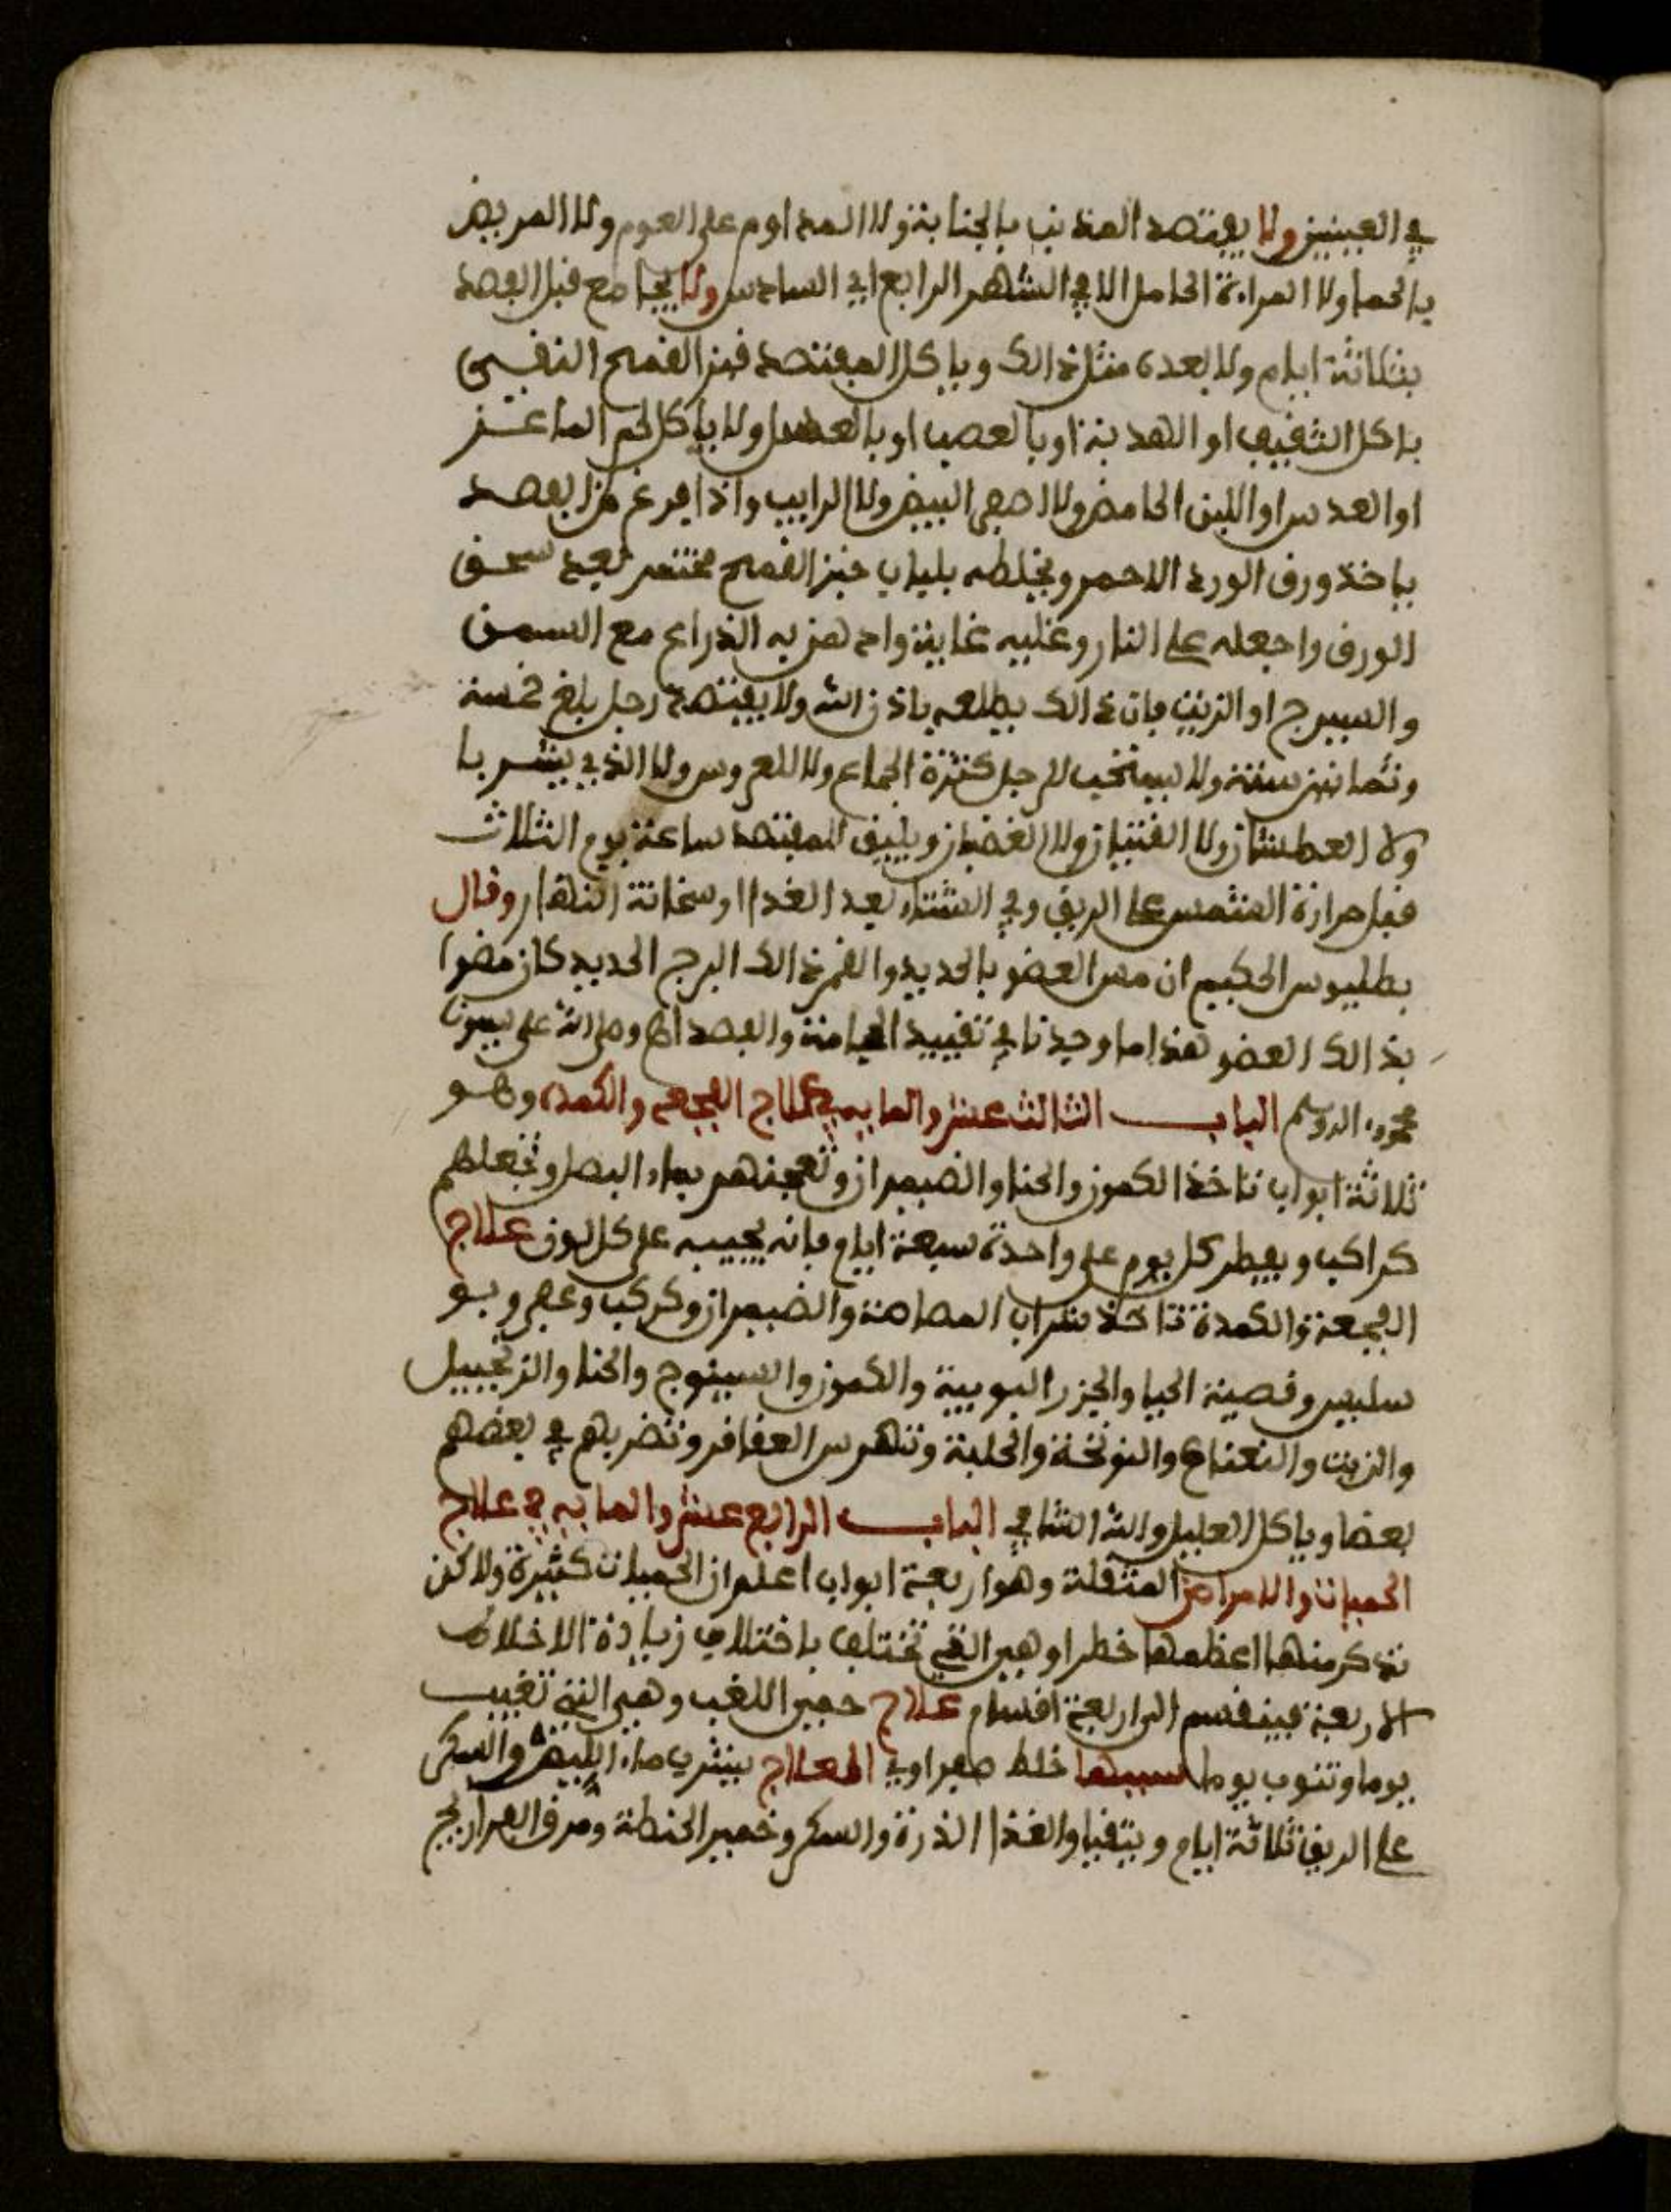 في العينين ولا يفتصد المذنب بالجنابة ولا المداوم على الصوم ولا المريض
بالحما ولا المراة الحامل الا في الشهر الرابع الي السادس ولا يجامع قبل الفصد
بثلاثة ايام ولا بعده مثل ذالك وياكل المفتصد خبز القمح النقي
ياكل او بالعسل ولا ياكل لحم الماعز
او العدس او اللبن الحامض ولا اصفر البيض ولا الرايب واذا افرغ من الفصد
ياخذ ورق الورد الاحمر ويخلطه بلباب خبز القمح مختمر بعد سحق
الورق واجعله على النار وغليه غاية وادهن به الذراع مع السمن
والسيرج او الزيت فان ذالك ينفعه باذن الله ولا يفتصد رجل بلغ خمسة
وثمانين سنة ولا يستحب للرجل كثرة الجماع ولا للعروس ولا الذي يشربا
ولا العطشان ولا ولا الغضبان ويليق للمفتصد ساعة يوم الثلاث
قبل حرارة الشمس على الريق وفي الشتاء بعد الغدا او سخانة النهار وقال
بطليوس الحكيم ان مس العضو بالحديد والقمر ذالك البرج الحديد كان مضرا
بذالك العضو هذا ما وجدنا في تقييد الحجامة والفصد اهـ وصلى الله على سيدنا
محمد واله وسلم الباب الثالث عشر والمايه في علاج الفجعه والكمده وهو
ثلاثة ابواب تاخذ الكمون والحنا والضيمران وتعجنهم بماء البصل وتجعلهم
كراكب ويفطر كل يوم على واحدة سبعة ايام فانه يجيبه على كل لون علاج
الفجعة والكمدة تاخذ شراب المصاصة والضيمران وكركب وعجروبو
سلبيس وقصينة الحيا والجزر البوبية والكمون والسينوج والحنا والزنجبيل
والزيت والنعناع والنونخة والحلبة وتهرس العقاقر وتضربهم في بعضهم
بعضا وياكل العليل والله الشافي الباب الرابع عشر والمايه في علاج
الحميات والامراض المنتقلة وهو اربعة ابواب اعلم ان الحميات كثيرة ولاكن
نذكر منها اعظمها خطرا وهي التي تختلف باختلاف زيادة الاخلاط
الاربعة فينقسم الى اربعة اقسام علاج حمى اللغب وهي التي تغيب
يوما وتنوب يوما سببها خلط صفراوي العلاج يشرب ماء والسكر
على الريق ثلاثة ايام ويتقيا والغذا الذرة والسكر وخمير الحنطة ومرق الفراريج